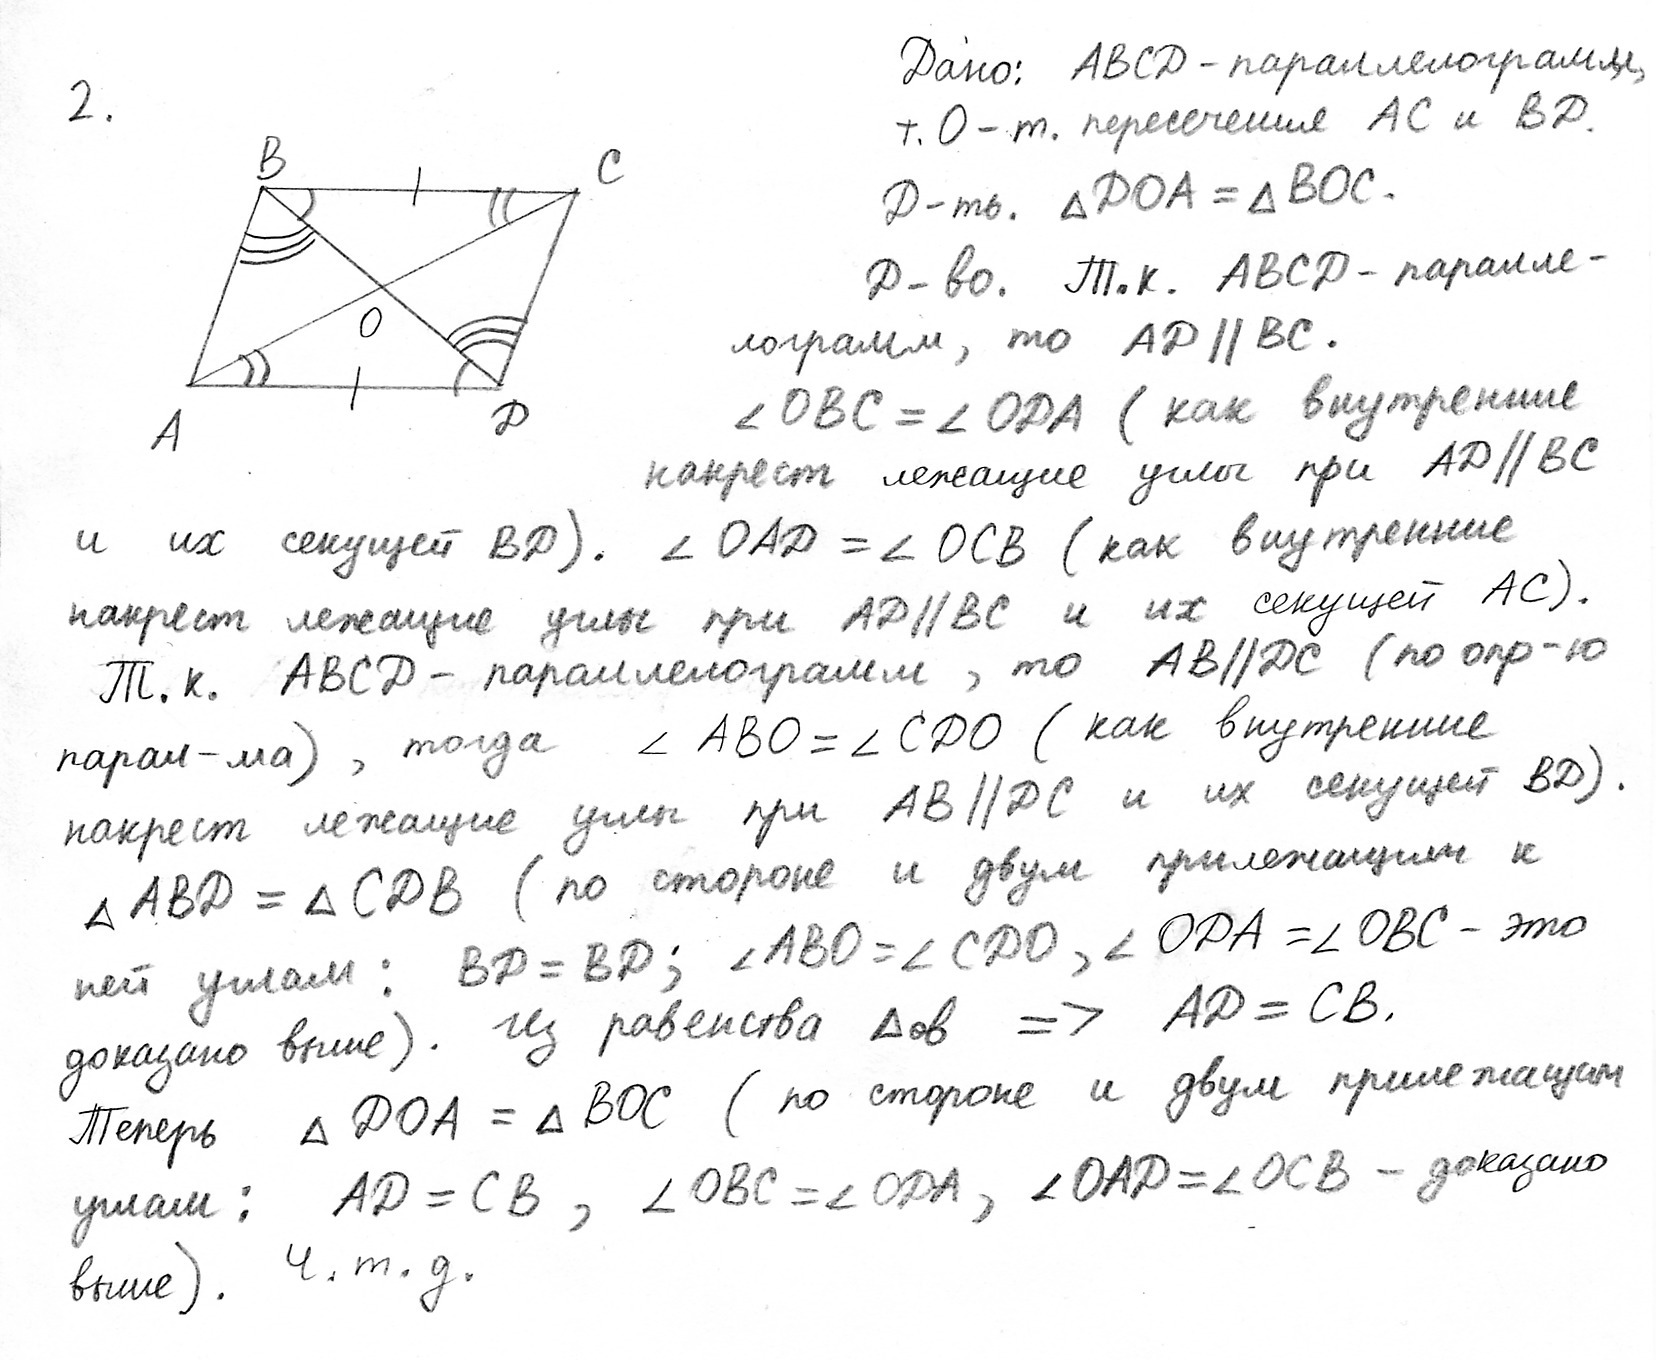 2.
Дано: ABCD - параллелограмм,
т. O - т. пересечения AC и BD.
Д-ть. △DOA = △BOC.
Д-во. Т.к. ABCD - паралле-
лограмм, то AD || BC.
∠OBC = ∠ODA (как внутренние
накрест лежащие углы при AD || BC
и их секущей BD). ∠OAD = ∠OCB (как внутренние
накрест лежащие углы при AD || BC и их секущей AC).
Т.к. ABCD - параллелограмм, то AB || DC (по опр-ю
парал-ма), тогда ∠ABO = ∠CDO (как внутренние
накрест лежащие углы при AB || DC и их секущей BD).
△ABD = △CDB (по стороне и двум прилежащим к
ней углам: BD = BD; ∠ABO = ∠CDO, ∠ODA = ∠OBC - это
доказано выше). Из равенства △ов => AD = CB.
Теперь △DOA = △BOC (по стороне и двум прилежащим
углам: AD = CB, ∠OBC = ∠ODA, ∠OAD = ∠OCB - доказано
выше). Ч.т.д.
B
C
O
A
D